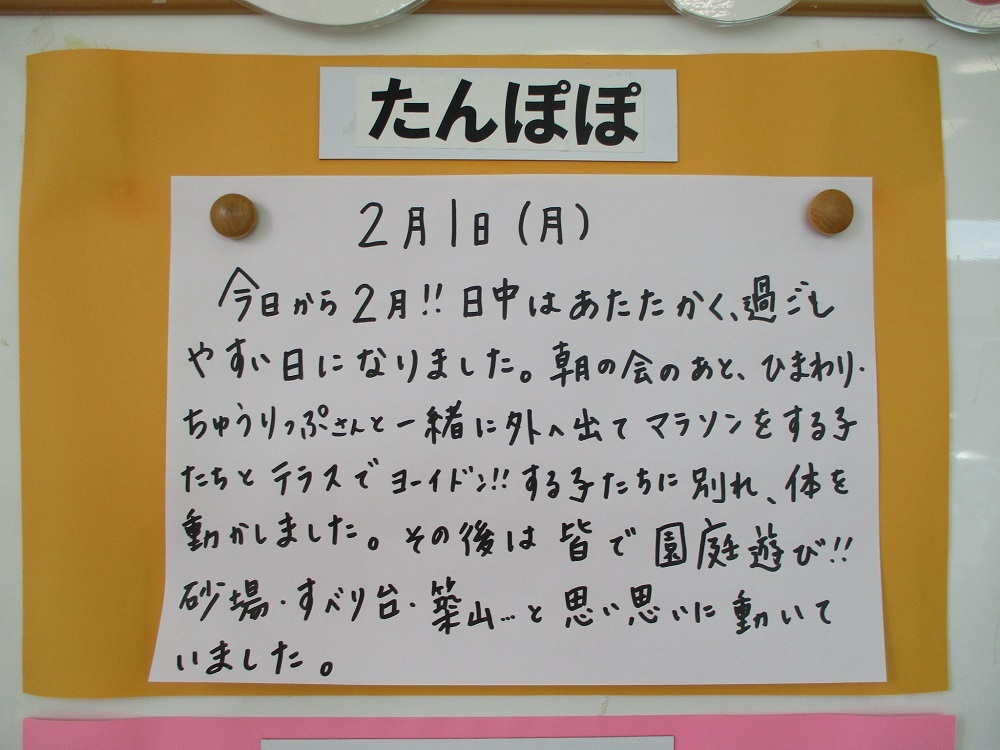 たんぽぽ
2月1日(月)
今日から2月!!日中はあたたかく、過ごし
やすい日になりました。朝の会のあと、ひまわり・
ちゅうりっぷさんと一緒に外へ出てマラソンをする子
たちとテラスでヨーイドン!!する子たちに別れ、体を
動かしました。その後は皆で園庭遊び!!
砂場・すべり台・築山…と思い思いに動いて
いました。